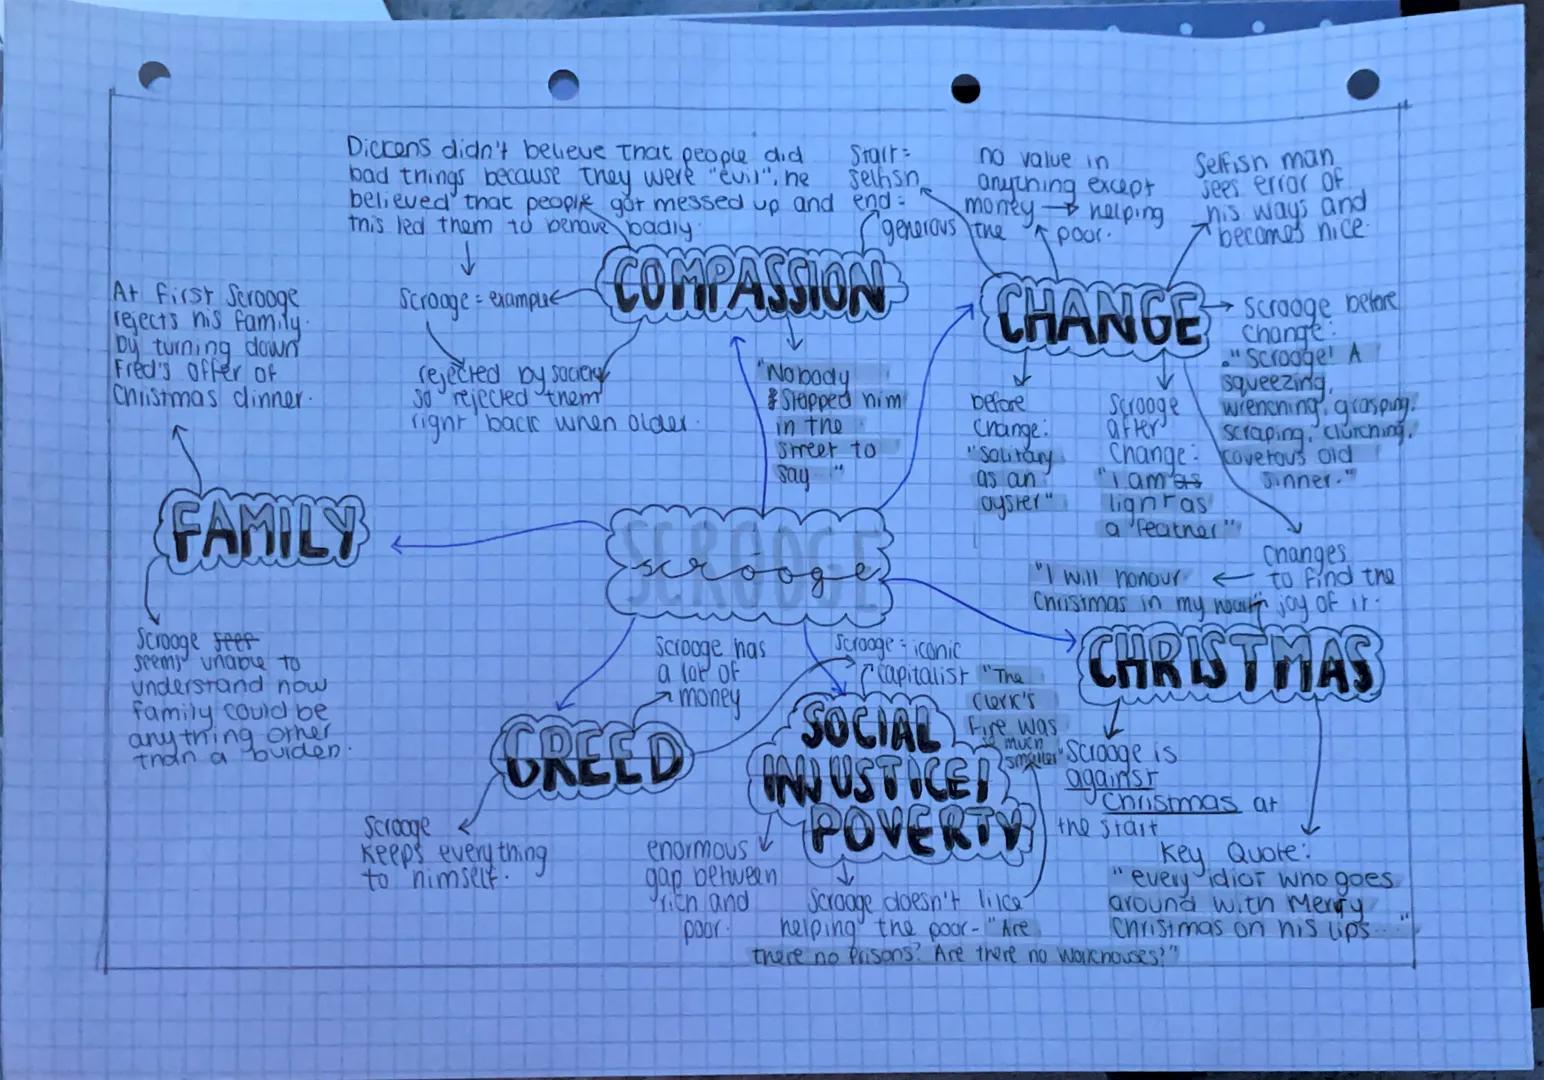 Dickens didn't believe that people did
bad things because they were "evil", he
believed that people got messed up and
this led them to behave badly.
Scrooge = example
rejected by society
so rejected them
right back when older.
COMPASSION
"Nobody
stopped him
in the
street to
say "
Start =
selfish
end =
generous
no value in
anything except
money → helping
the poor.
Selfish man
sees error of
his ways and
becomes nice.
CHANGE
Scrooge before
change:
"Scrooge! A
squeezing,
wrenching, grasping,
scraping, clutching,
covetous old
sinner."
before
change:
"solitary
as an
oyster"
Scrooge
after
change:
"I am as
light as
a feather"
At first Scrooge
rejects his family
by turning down
Fred's offer of
Christmas dinner.
FAMILY
Scrooge seef
seems unable to
understand how
family could be
anything other
than a burden.
SCROOGE
scrooge
changes
to find the
joy of it.
"I will honour
Christmas in my heart"
CHRISTMAS
Scrooge is
against
Christmas at
the start
Key Quote:
"every idiot who goes
around with Merry
Christmas on his lips...."
Scrooge has
a lot of
money
GREED
Scrooge
keeps everything
to himself.
Scrooge = iconic
capitalist
"The
clerk's
fire was
much
smaller"
SOCIAL
INJUSTICE/
POVERTY
enormous
gap between
rich and
poor.
Scrooge doesn't like
helping the poor - "Are
there no Prisons? Are there no workhouses?"